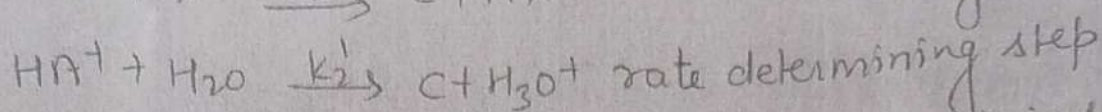 HA⁺ + H₂O —K₂'→ C + H₃O⁺ rate determining step